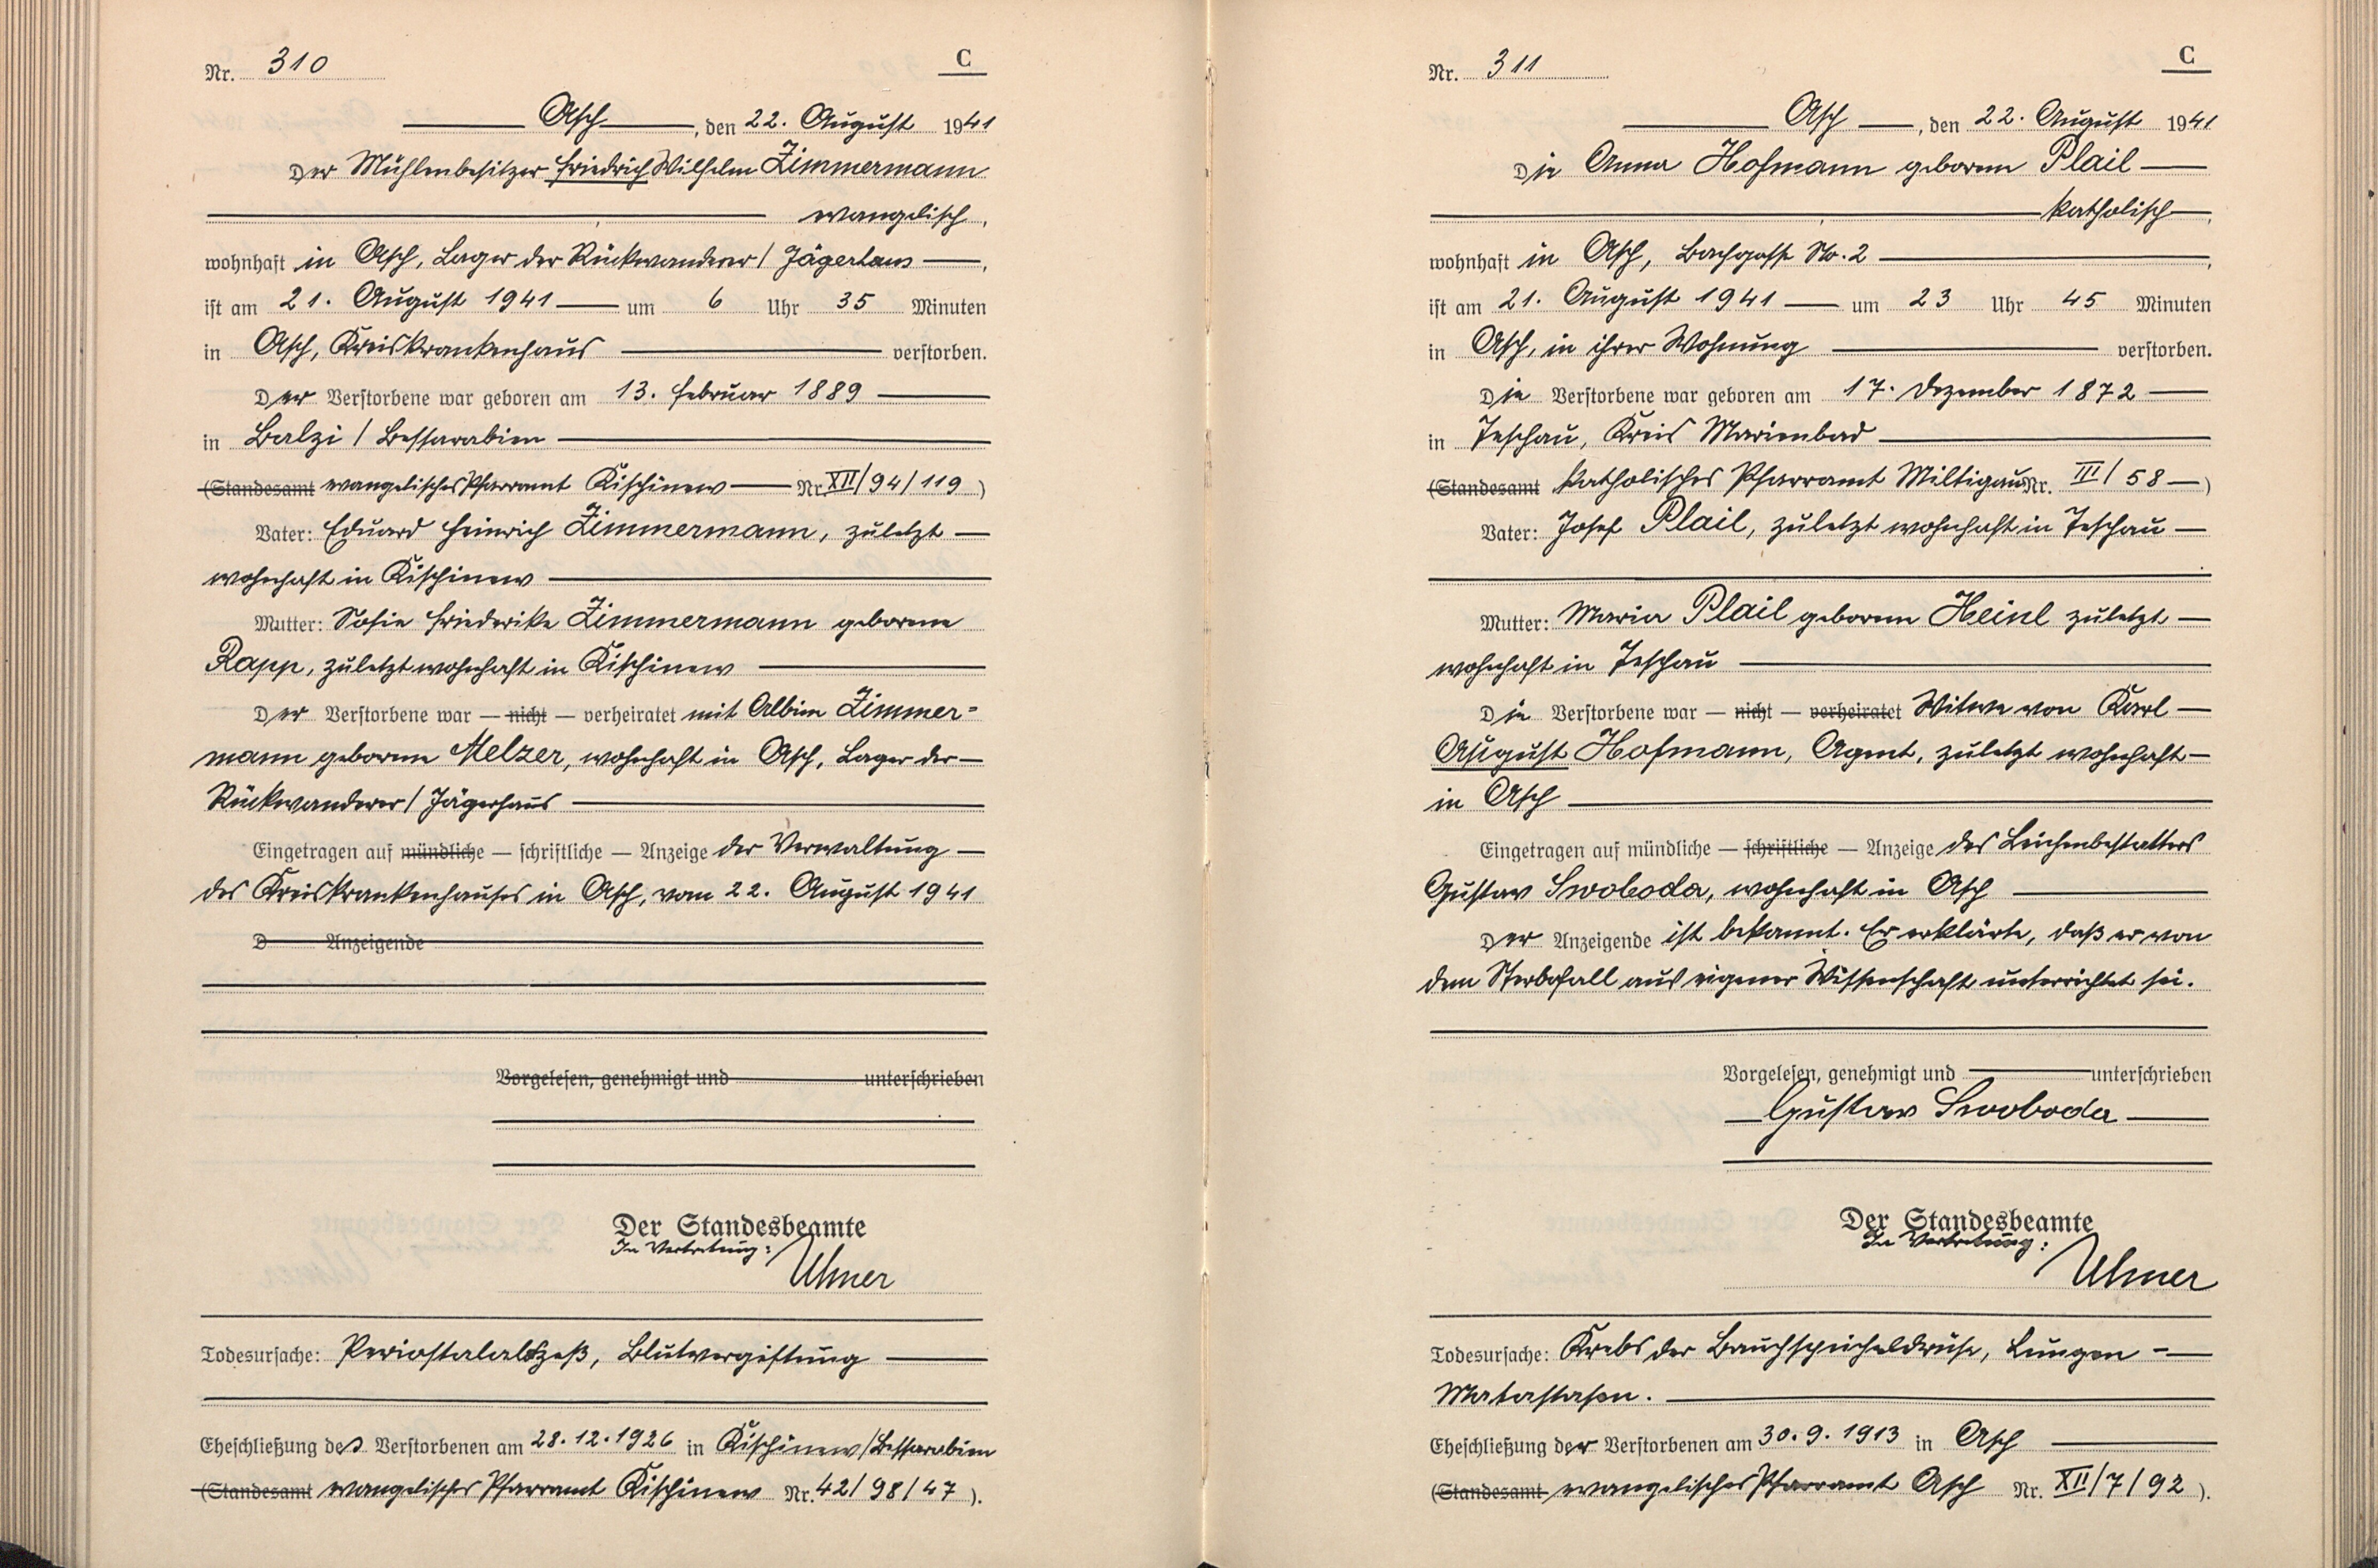 Nr. 310
C
Asch, den 22. August 1941
Der Mühlenbesitzer Friedrich Wilhelm Zimmermann
, evangelisch,
wohnhaft in Asch, Lager der Rückwanderer / Jägerhaus,
ist am 21. August 1941 um 6 Uhr 35 Minuten
in Asch, Kreiskrankenhaus verstorben.
Der Verstorbene war geboren am 13. Februar 1889
in Balzi / Bessarabien
(Standesamt evangelisches Pfarramt Kischinew Nr. XII/94/119)
Vater: Eduard Heinrich Zimmermann, zuletzt
wohnhaft in Kischinew
Mutter: Sofie Friederike Zimmermann geborene
Rapp, zuletzt wohnhaft in Kischinew
Der Verstorbene war — nicht — verheiratet mit Albine Zimmer=
mann geborene Melzer, wohnhaft in Asch, Lager der
Rückwanderer / Jägerhaus
Eingetragen auf mündliche — schriftliche — Anzeige der Verwaltung
des Kreiskrankenhauses in Asch, vom 22. August 1941
D Anzeigende
Vorgelesen, genehmigt und unterschrieben
Der Standesbeamte
In Vertretung:
Ulmer
Todesursache: Periostalabszeß, Blutvergiftung
Eheschließung des Verstorbenen am 28.12.1926 in Kischinew/Bessarabien
(Standesamt evangelisches Pfarramt Kischinew Nr. 42/98/47).
Nr. 311
C
Asch, den 22. August 1941
Die Anna Hofmann geborene Plail
, katholisch,
wohnhaft in Asch, Bachgasse No. 2,
ist am 21. August 1941 um 23 Uhr 45 Minuten
in Asch, in ihrer Wohnung verstorben.
Die Verstorbene war geboren am 17. Dezember 1872
in Teschau, Kreis Marienbad
(Standesamt katholisches Pfarramt Miltigau Nr. III/58)
Vater: Josef Plail, zuletzt wohnhaft in Teschau
Mutter: Maria Plail geborene Heinl zuletzt
wohnhaft in Teschau
Die Verstorbene war — nicht — verheiratet Witwe von Karl
August Hofmann, Agent, zuletzt wohnhaft
in Asch
Eingetragen auf mündliche — schriftliche — Anzeige des Leichenbestatters
Gustav Swoboda, wohnhaft in Asch
Der Anzeigende ist bekannt. Er erklärte, daß er von
dem Sterbefall aus eigener Wissenschaft unterrichtet sei.
Vorgelesen, genehmigt und unterschrieben
Gustav Swoboda
Der Standesbeamte
In Vertretung:
Ulmer
Todesursache: Krebs der Bauchspeicheldrüse, Lungen-
Metastasen.
Eheschließung der Verstorbenen am 30.9.1913 in Asch
(Standesamt evangelisches Pfarramt Asch Nr. XII/7/92).